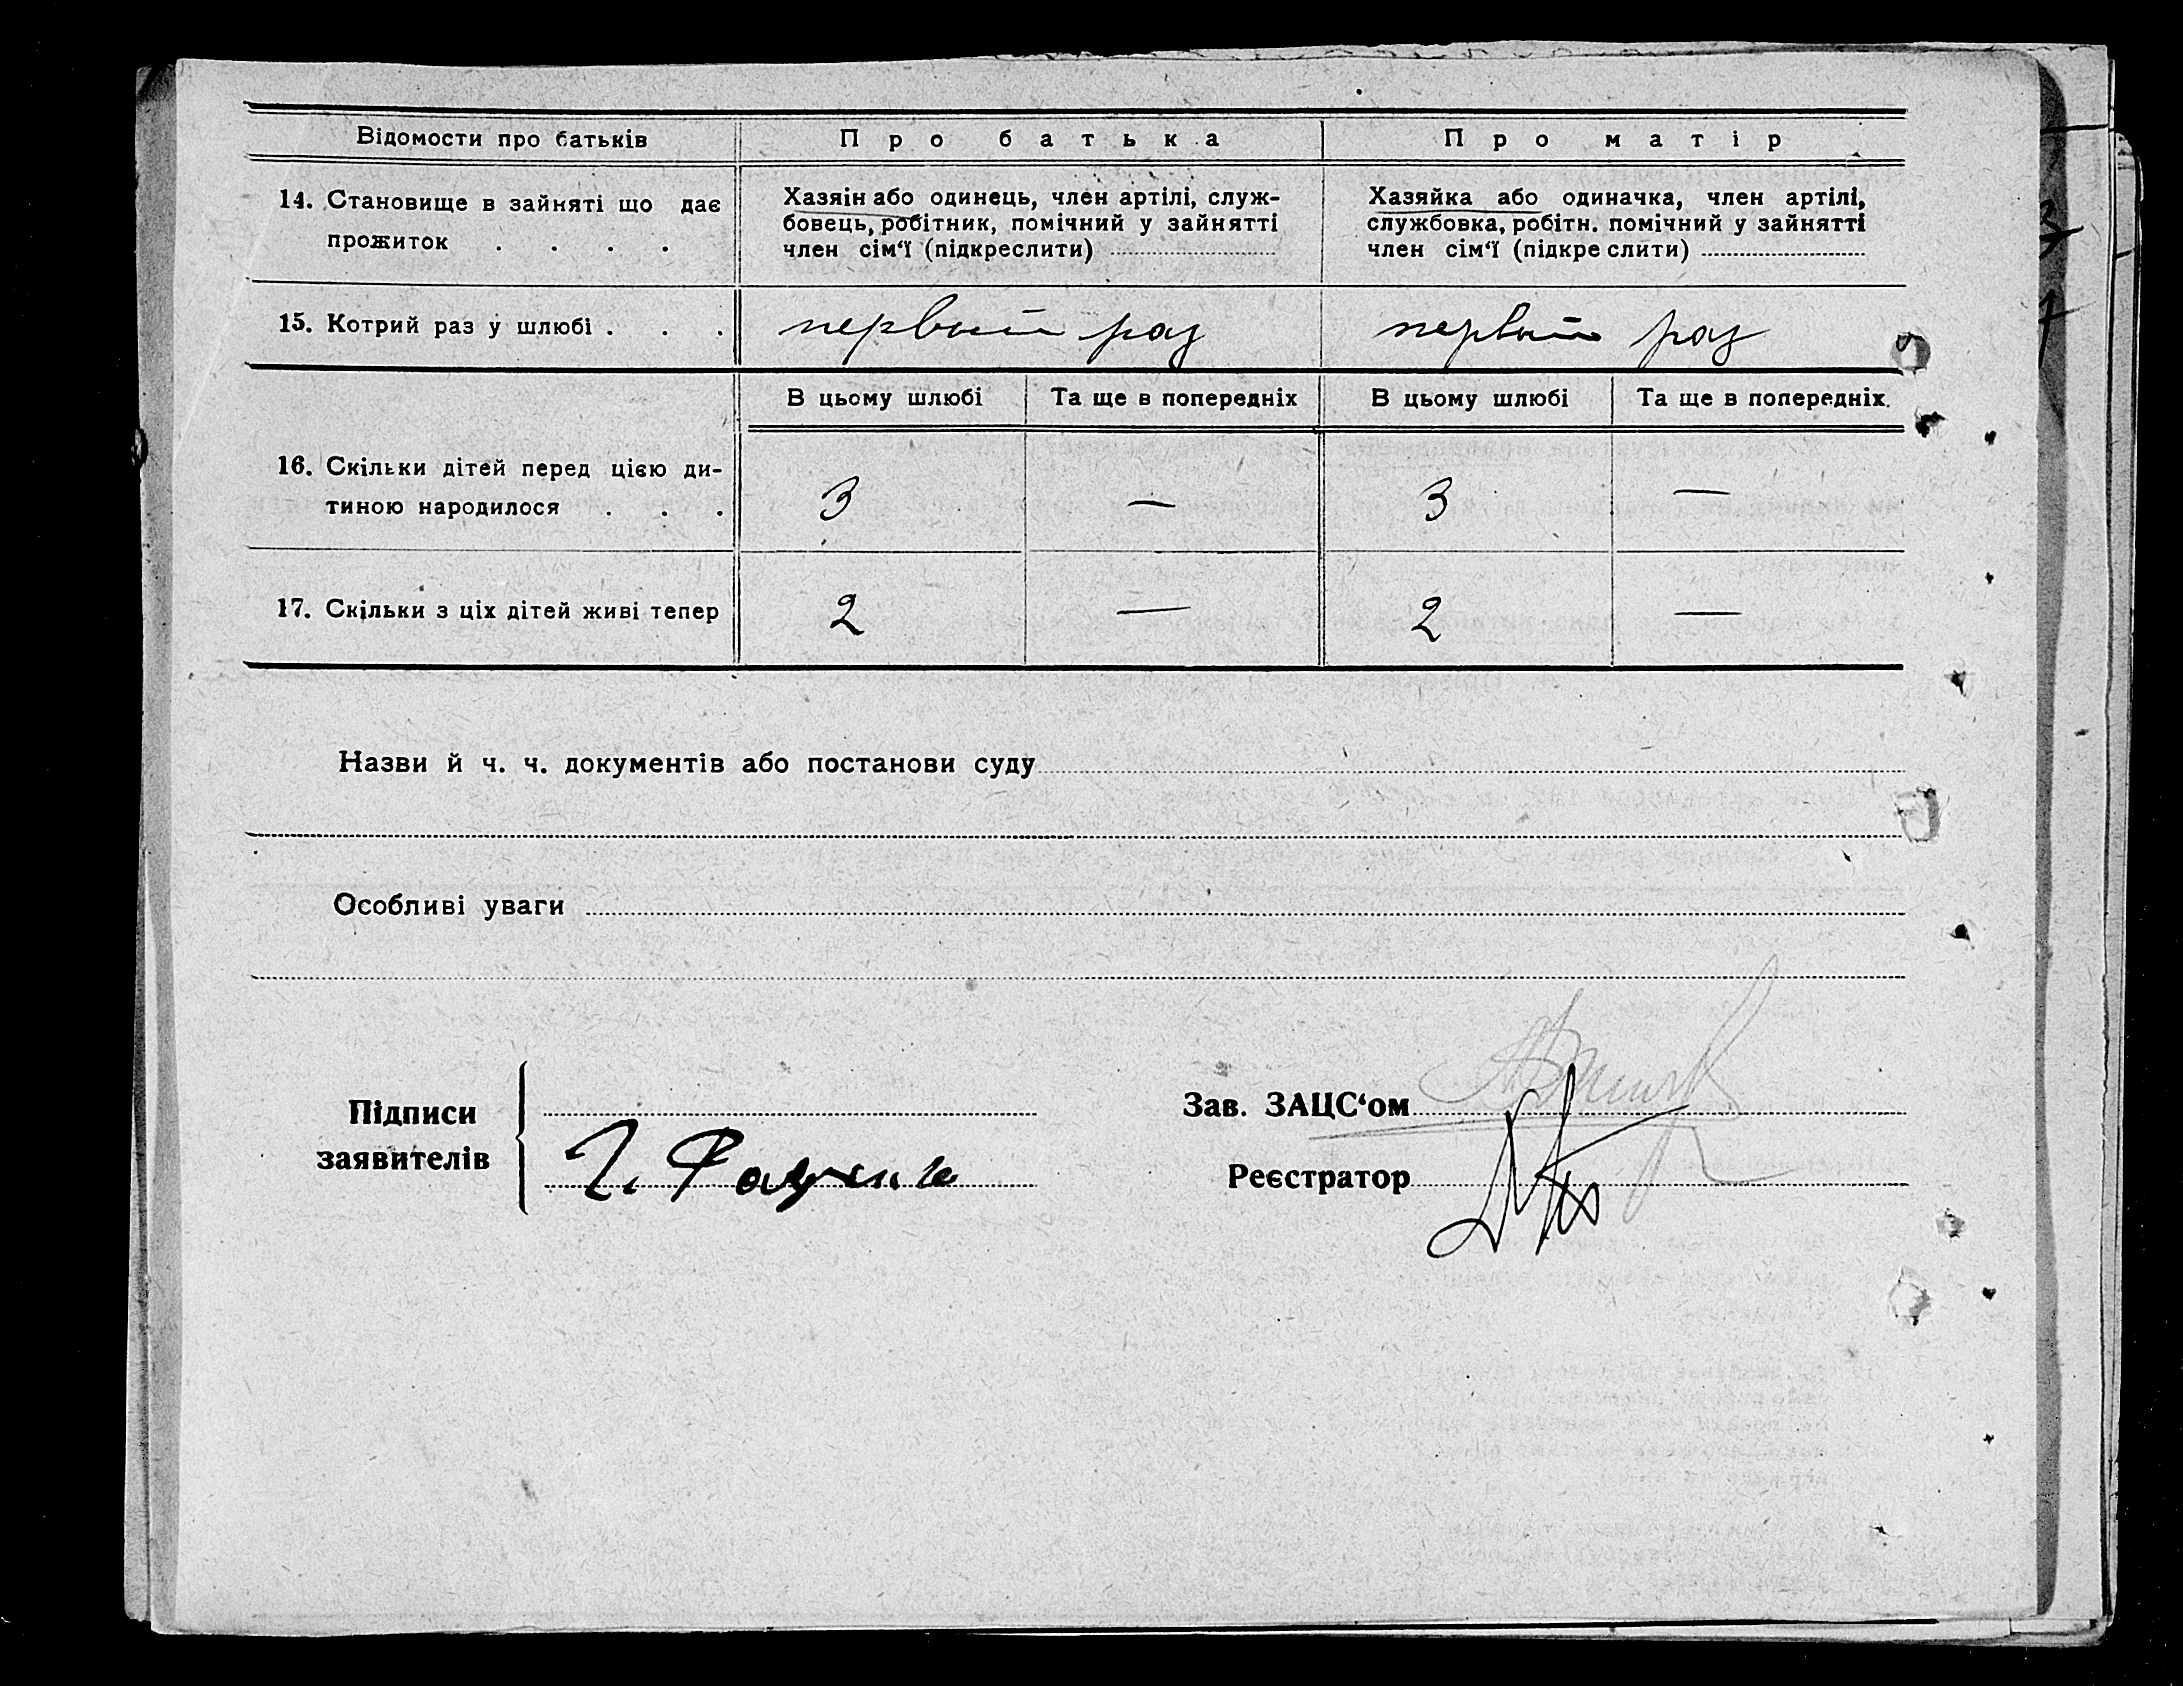 Відомости про батьків Про батька Про матір
14. Становище в зайняті що дає
прожиток . . . .
Хазяін або одинець, член артілі, служ-
бовець, робітник, помічний у зайнятті
член сім‘ї (підкреслити)
Хазяйка або одиначка, член артілі,
службовка, робітн. помічний у зайнятті
член сім‘ї (підкре слити)
15. Котрий раз у шлюбі . . . первый раз первый раз
В цьому шлюбі Та ще в попередніх В цьому шлюбі Та ще в попередніх.
16. Скільки дітей перед цією ди-
тиною народилося . . .
3 — 3 —
17. Скільки з ціх дітей живі тепер 2 — 2 —
Назви й ч. ч. документів або постанови суду
Особливі уваги
Підписи
заявителів
Зав. ЗАЦС‘ом
Реєстратор